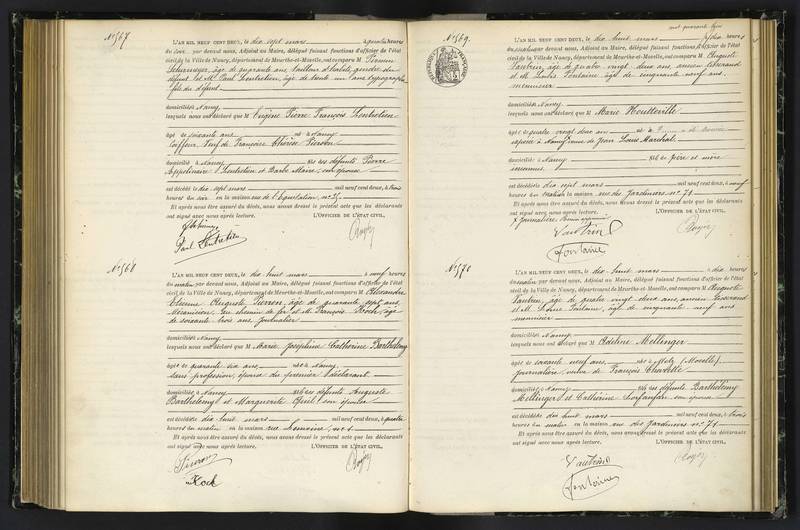 N° 567
L'AN MIL NEUF CENT DEUX, le dix sept mars à quatre heures
du soir par devant nous, Adjoint au Maire, délégué faisant fonctions d'officier de l'état
civil de la Ville de Nancy, département de Meurthe-et-Moselle, ont comparu M Pierron
âgé de quarante ans, tailleur d'habits, gendre du
défunt et M. Paul Lentretien, âgé de trente un ans, typographe
fils du défunt
domiciliés Nancy
lesquels nous ont déclaré que M Eugène Pierre François Lentretien
âgé de soixante ans né à Nancy
Coiffeur, Veuf de Françoise Thérèse Pierson
domicilié à Nancy fils des défunts Pierre
Appolinaire Lentretien et Barbe Maire, son épouse
est décédé le dix sept mars mil neuf cent deux, à trois
heures du soir en la maison rue de l'Equitation, n° 25.
Et après nous être assuré du décès, nous avons dressé le présent acte que les déclarants
ont signé avec nous après lecture. L'OFFICIER DE L'ÉTAT CIVIL,
Paul Lentretien
N° 568
L'AN MIL NEUF CENT DEUX, le dix huit mars à neuf heures
du matin par devant nous, Adjoint au Maire, délégué faisant fonctions d'officier de l'état
civil de la Ville de Nancy, département de Meurthe-et-Moselle, ont comparu M Alexandre
Etienne Auguste Pierron, âgé de quarante sept ans,
Mécanicien au chemin de fer et M. François Koch, âgé
de soixante trois ans, journalier
domiciliés Nancy
lesquels nous ont déclaré que M Marie Joséphine Catherine Barthélemy
âgée de quarante six ans née à Nancy
sans profession, épouse du premier déclarant
domiciliée à Nancy fille des défunts Auguste
Barthélemy et Marguerite son épouse
est décédée dix huit mars mil neuf cent deux, à quatre
heures du matin en la maison rue n° 1
Et après nous être assuré du décès, nous avons dressé le présent acte que les déclarants
ont signé avec nous après lecture. L'OFFICIER DE L'ÉTAT CIVIL,
Pierron
Koch
N° 569
L'AN MIL NEUF CENT DEUX, le dix huit mars à dix heures
du matin par devant nous, Adjoint au Maire, délégué faisant fonctions d'officier de l'état
civil de la Ville de Nancy, département de Meurthe-et-Moselle, ont comparu M Auguste
Vautrin, âgé de quatre vingt deux ans, ancien tisserand
et M. Louis Fontaine, âgé de cinquante neuf ans,
menuisier
domiciliés Nancy
lesquels nous ont déclaré que M Marie Houtteville
âgée de quatre vingt deux ans née à
épouse de Jean Louis Marchal
domiciliée à Nancy fille de père et mère
inconnus
est décédée dix sept mars mil neuf cent deux, à neuf
heures du matin en la maison rue des Jardiniers n° 71
Et après nous être assuré du décès, nous avons dressé le présent acte que les déclarants
ont signé avec nous après lecture. L'OFFICIER DE L'ÉTAT CIVIL,
Vautrin
Fontaine
N° 570
L'AN MIL NEUF CENT DEUX, le dix huit mars à dix heures
du matin par devant nous, Adjoint au Maire, délégué faisant fonctions d'officier de l'état
civil de la Ville de Nancy, département de Meurthe-et-Moselle, ont comparu M Auguste
Vautrin, âgé de quatre vingt deux ans, ancien tisserand
et M. Louis Fontaine, âgé de cinquante neuf ans
menuisier
domiciliés Nancy
lesquels nous ont déclaré que M Adeline Mellinger
âgée de soixante neuf ans née à Metz (Moselle)
journalière veuve de François Chavelle
domiciliée à Nancy fille des défunts Barthélemy
Mellinger et Catherine son épouse
est décédée dix huit mars mil neuf cent deux, à trois
heures du matin en la maison rue des Jardiniers n° 71
Et après nous être assuré du décès, nous avons dressé le présent acte que les déclarants
ont signé avec nous après lecture. L'OFFICIER DE L'ÉTAT CIVIL,
Vautrin
Fontaine